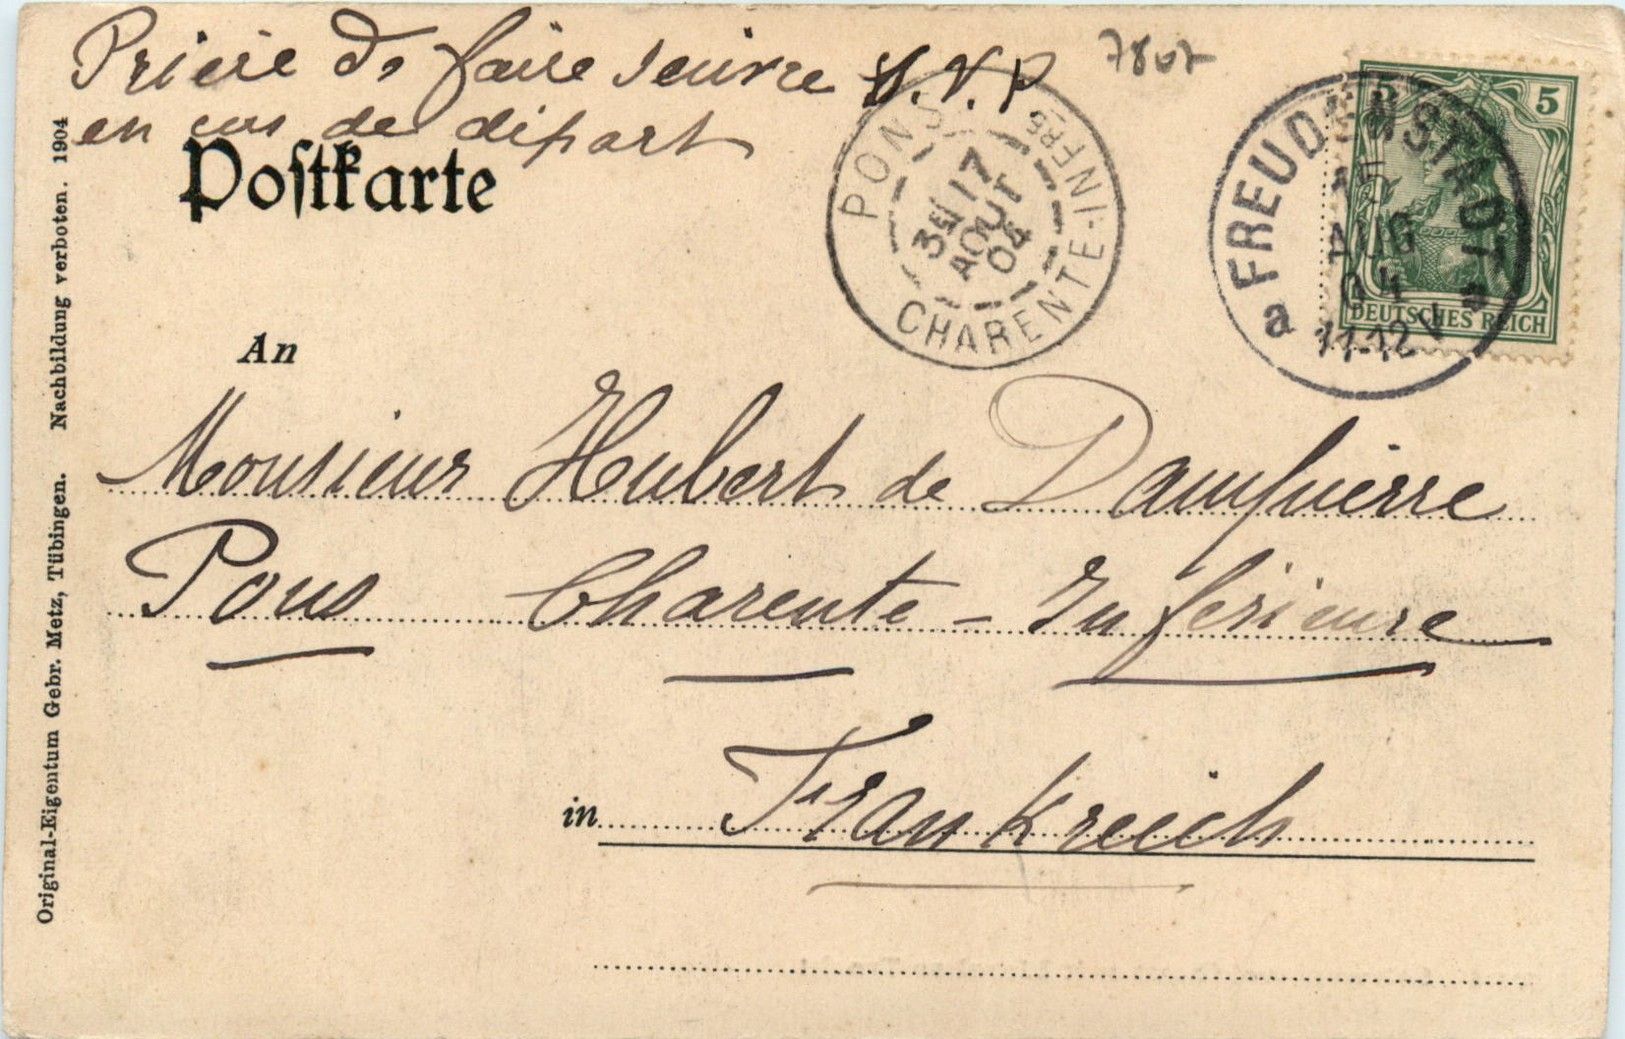 Prière de faire suivre S.V.P
en cas de départ
7807
Poſtkarte
PONS
3E/17
AOUT
04
CHARENTE-INFRE
FREUDENSTADT
15
AUG
04
11-12V
a
5 5
DEUTSCHES REICH
An
Monsieur Hubert de Dampierre
Pons Charente-Inférieure
in Frankreich
Original-Eigentum Gebr. Metz, Tübingen. Nachbildung verboten. 1904